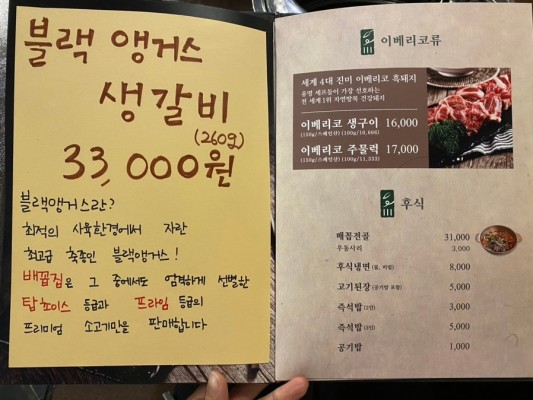 블랙 앵거스
생갈비
(260g)
33,000원
블랙앵거스란?
최적의 사육환경에서 자란
최고급 축종인 블랙앵거스!
배꼽집은 그 중에서도 엄격하게 선별한
탑초이스 등급과 프라임 등급의
프리미엄 소고기만을 판매합니다
이베리코류
세계 4대 진미 이베리코 흑돼지
유명 셰프들이 가장 선호하는
전 세계 1위 자연방목 건강돼지
이베리코 생구이 16,000
(150g/스페인산) (100g/10,666)
이베리코 주물럭 17,000
(150g/스페인산) (100g/11,333)
후식
배꼽전골 31,000
우동사리 3,000
후식냉면 (물, 비빔) 8,000
고기된장 (공기밥 포함) 5,000
즉석밥 (1인) 3,000
즉석밥 (2인) 5,000
공기밥 1,000